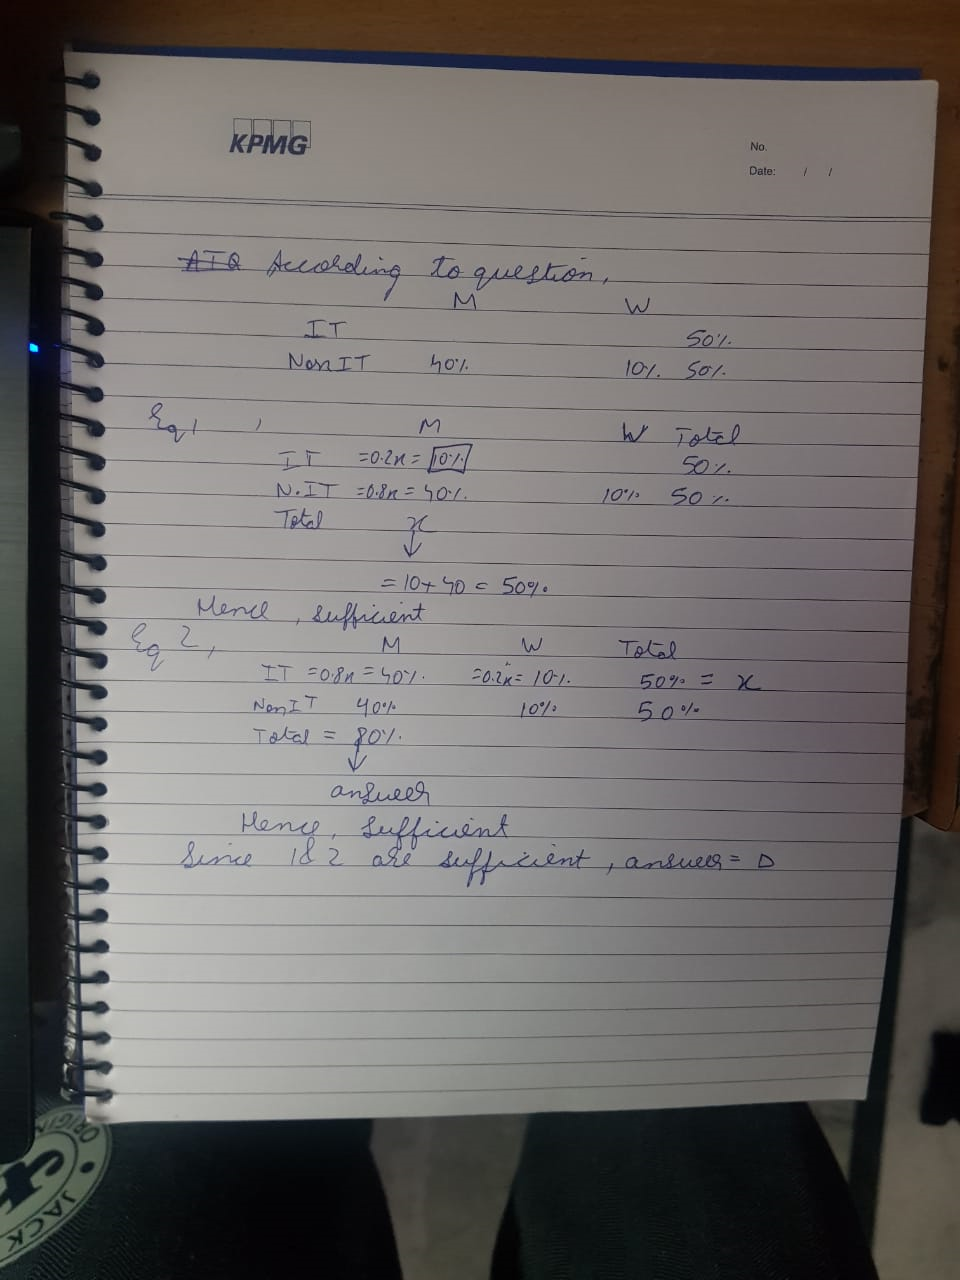 KPMG
No.
Date: / /
ATQ According to question,
M W
IT 50%.
Non IT 40%. 10%. 50%.
Eq 1, M W Total
IT =0.2x = 10%. 50%.
N.IT =0.8x = 40%. 10%. 50%.
Total x
↓
= 10+40 = 50%.
Hence, sufficient
Eq 2, M W Total
IT =0.8x = 40%. =0.2x = 10%. 50% = x
Non IT 40% 10% 50%
Total = 80%.
↓
answer
Hence, Sufficient
Since 1 & 2 are sufficient, answer = D
ORIGIN
JACK